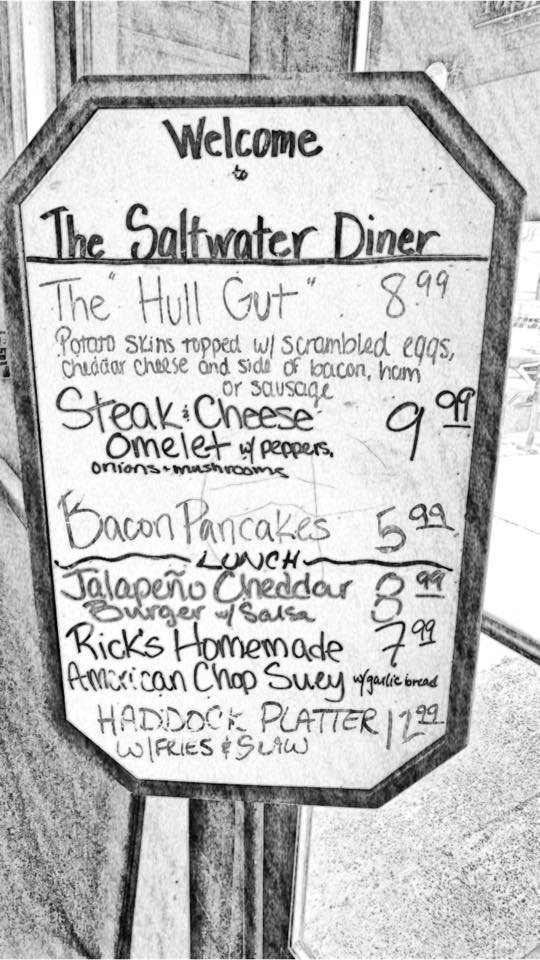 Welcome
to
The Saltwater Diner
The "Hull Gut" 8.99
Potato skins topped w/ scrambled eggs,
cheddar cheese and side of bacon, ham
or sausage
Steak & Cheese 9.99
Omelet w/ peppers,
onions + mushrooms
Bacon Pancakes 5.99
LUNCH
Jalapeño Cheddar 8.99
Burger w/ Salsa
Rick's Homemade 7.99
American Chop Suey w/ garlic bread
HADDOCK PLATTER 12.99
W/FRIES & SLAW